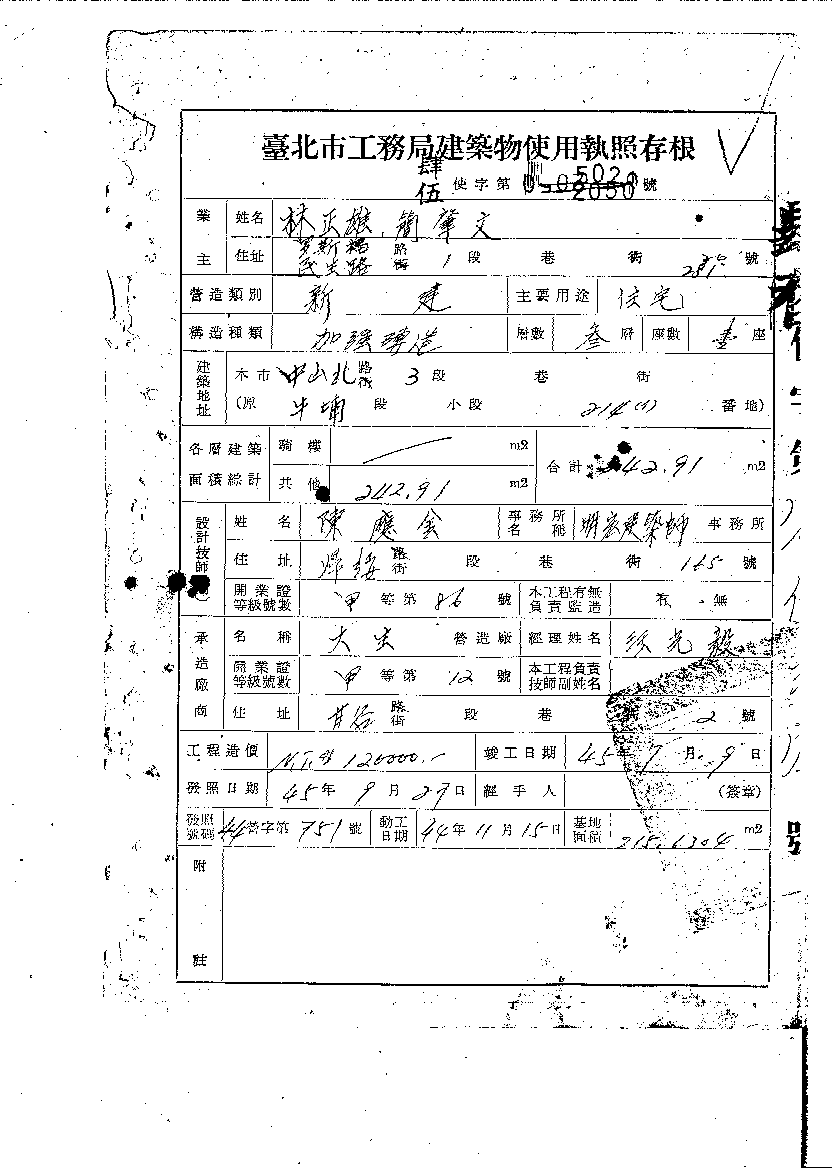 臺北市工務局建築物使用執照存根
肆伍 使字第 5020 2050 號
業主 姓名 林正雄、簡肇文
住址 羅斯福 民生路 路街 1 段 巷 街 號
營造類別 新建 主要用途 住宅
構造種類 加強磚造 層數 叁層 座數 壹座
建築地址 本市 中山北路街 3 段 巷 街
(原 牛埔 段 小段 214(1) 番地)
各層建築面積綜計 騎樓 m2 合計 242.91 m2
其他 242.91 m2
設計技師 姓名 陳應金 事務所名稱 建築師事務所
住址 路街 段 巷 街 號
開業證等級號數 甲等第 86 號 本工程有無負責監造 有 無
承造廠商 名稱 大 營造廠 經理姓名
開業證等級號數 甲等第 12 號 本工程負責技師副姓名
住址 甘谷 路街 段 巷 街 2 號
工程造價 N.T.$ 120000.- 竣工日期 45年7月9日
發照日期 45年9月27日 經手人 (簽章)
發照號碼 44營字第 751 號 動工日期 44年11月15日 基地面積 215.6304 m2
附註
號